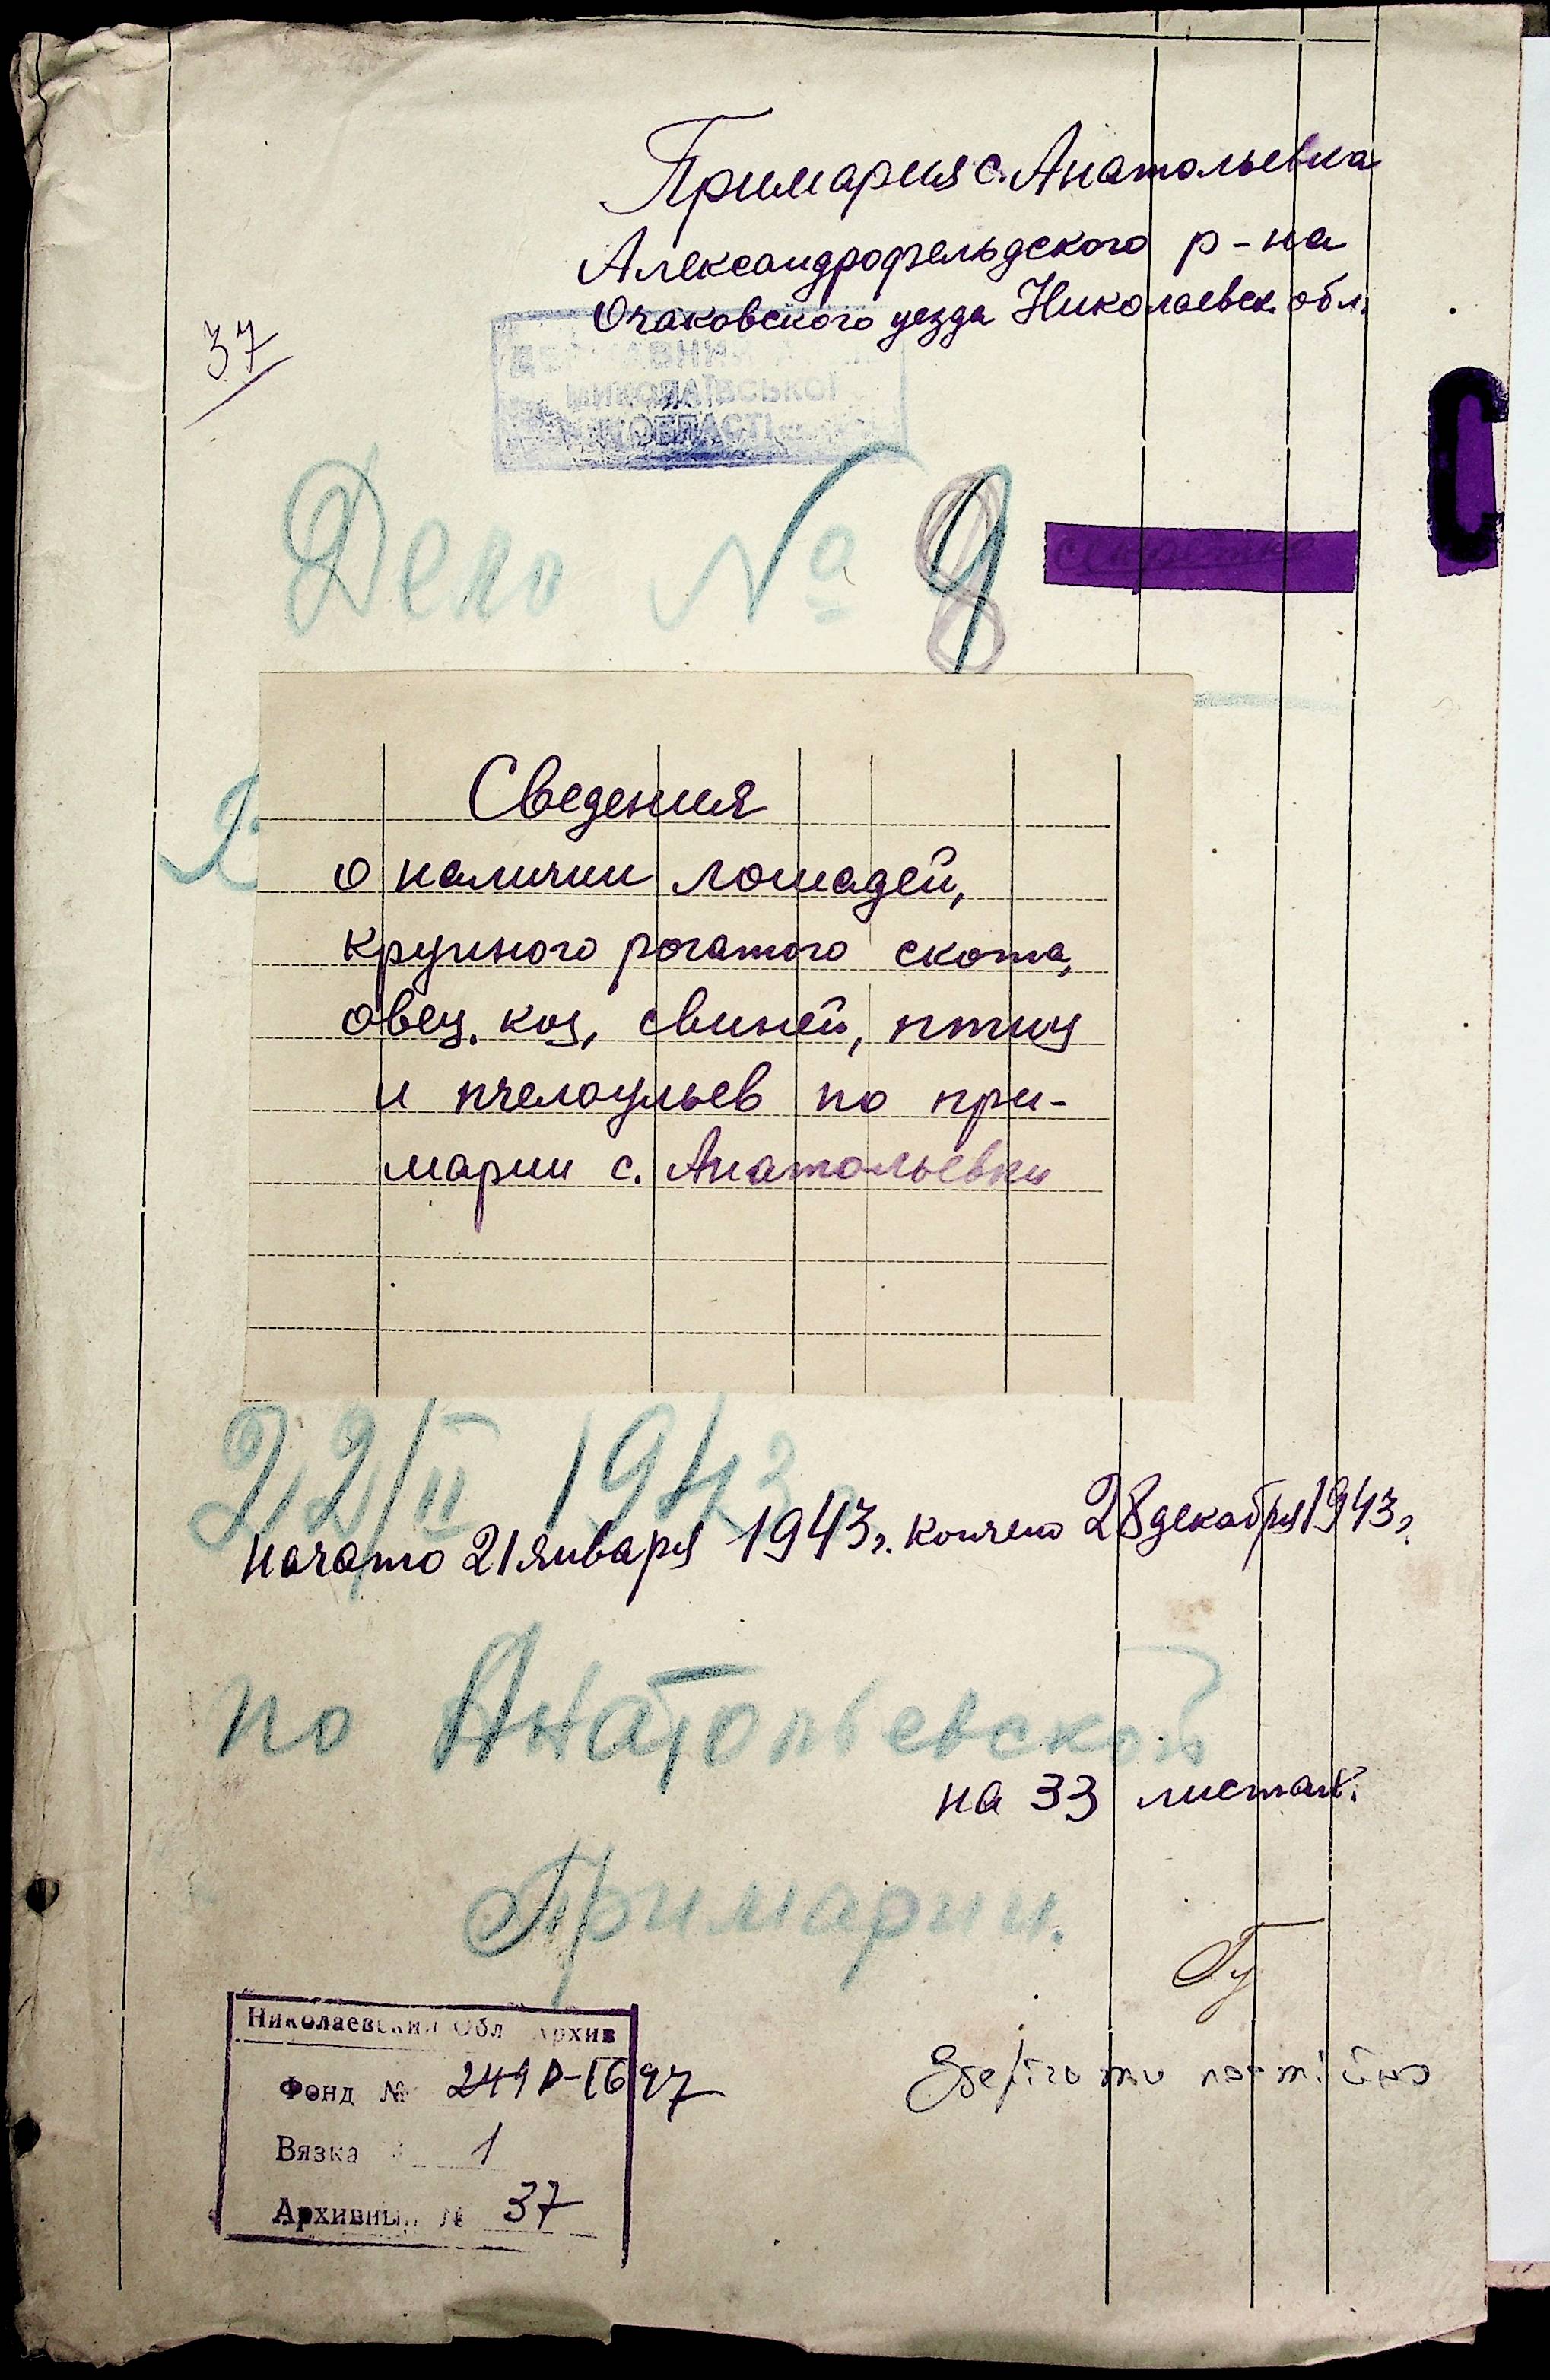 Примария с. Анатольевка
Александрофельдского р-на
Очаковского уезда Николаевск. обл.
37
МИКОЛАЇВСЬКОЇ
ОБЛАСТІ
С
Дело № 9
секретно
Сведения
о наличии лошадей,
крупного рогатого скота,
овец, коз, свиней, птиц
и пчелоульев по при-
марии с. Анатольевки
22/II 1943
Начато 21 января 1943 г. кончено 28 декабря 1943 г.
по Анатольевской
на 33 листах.
Примарии.
Николаевский Обл Архив
Фонд № 249 Р-1697
Зберігати постійно
Вязка 1
Архивный № 37